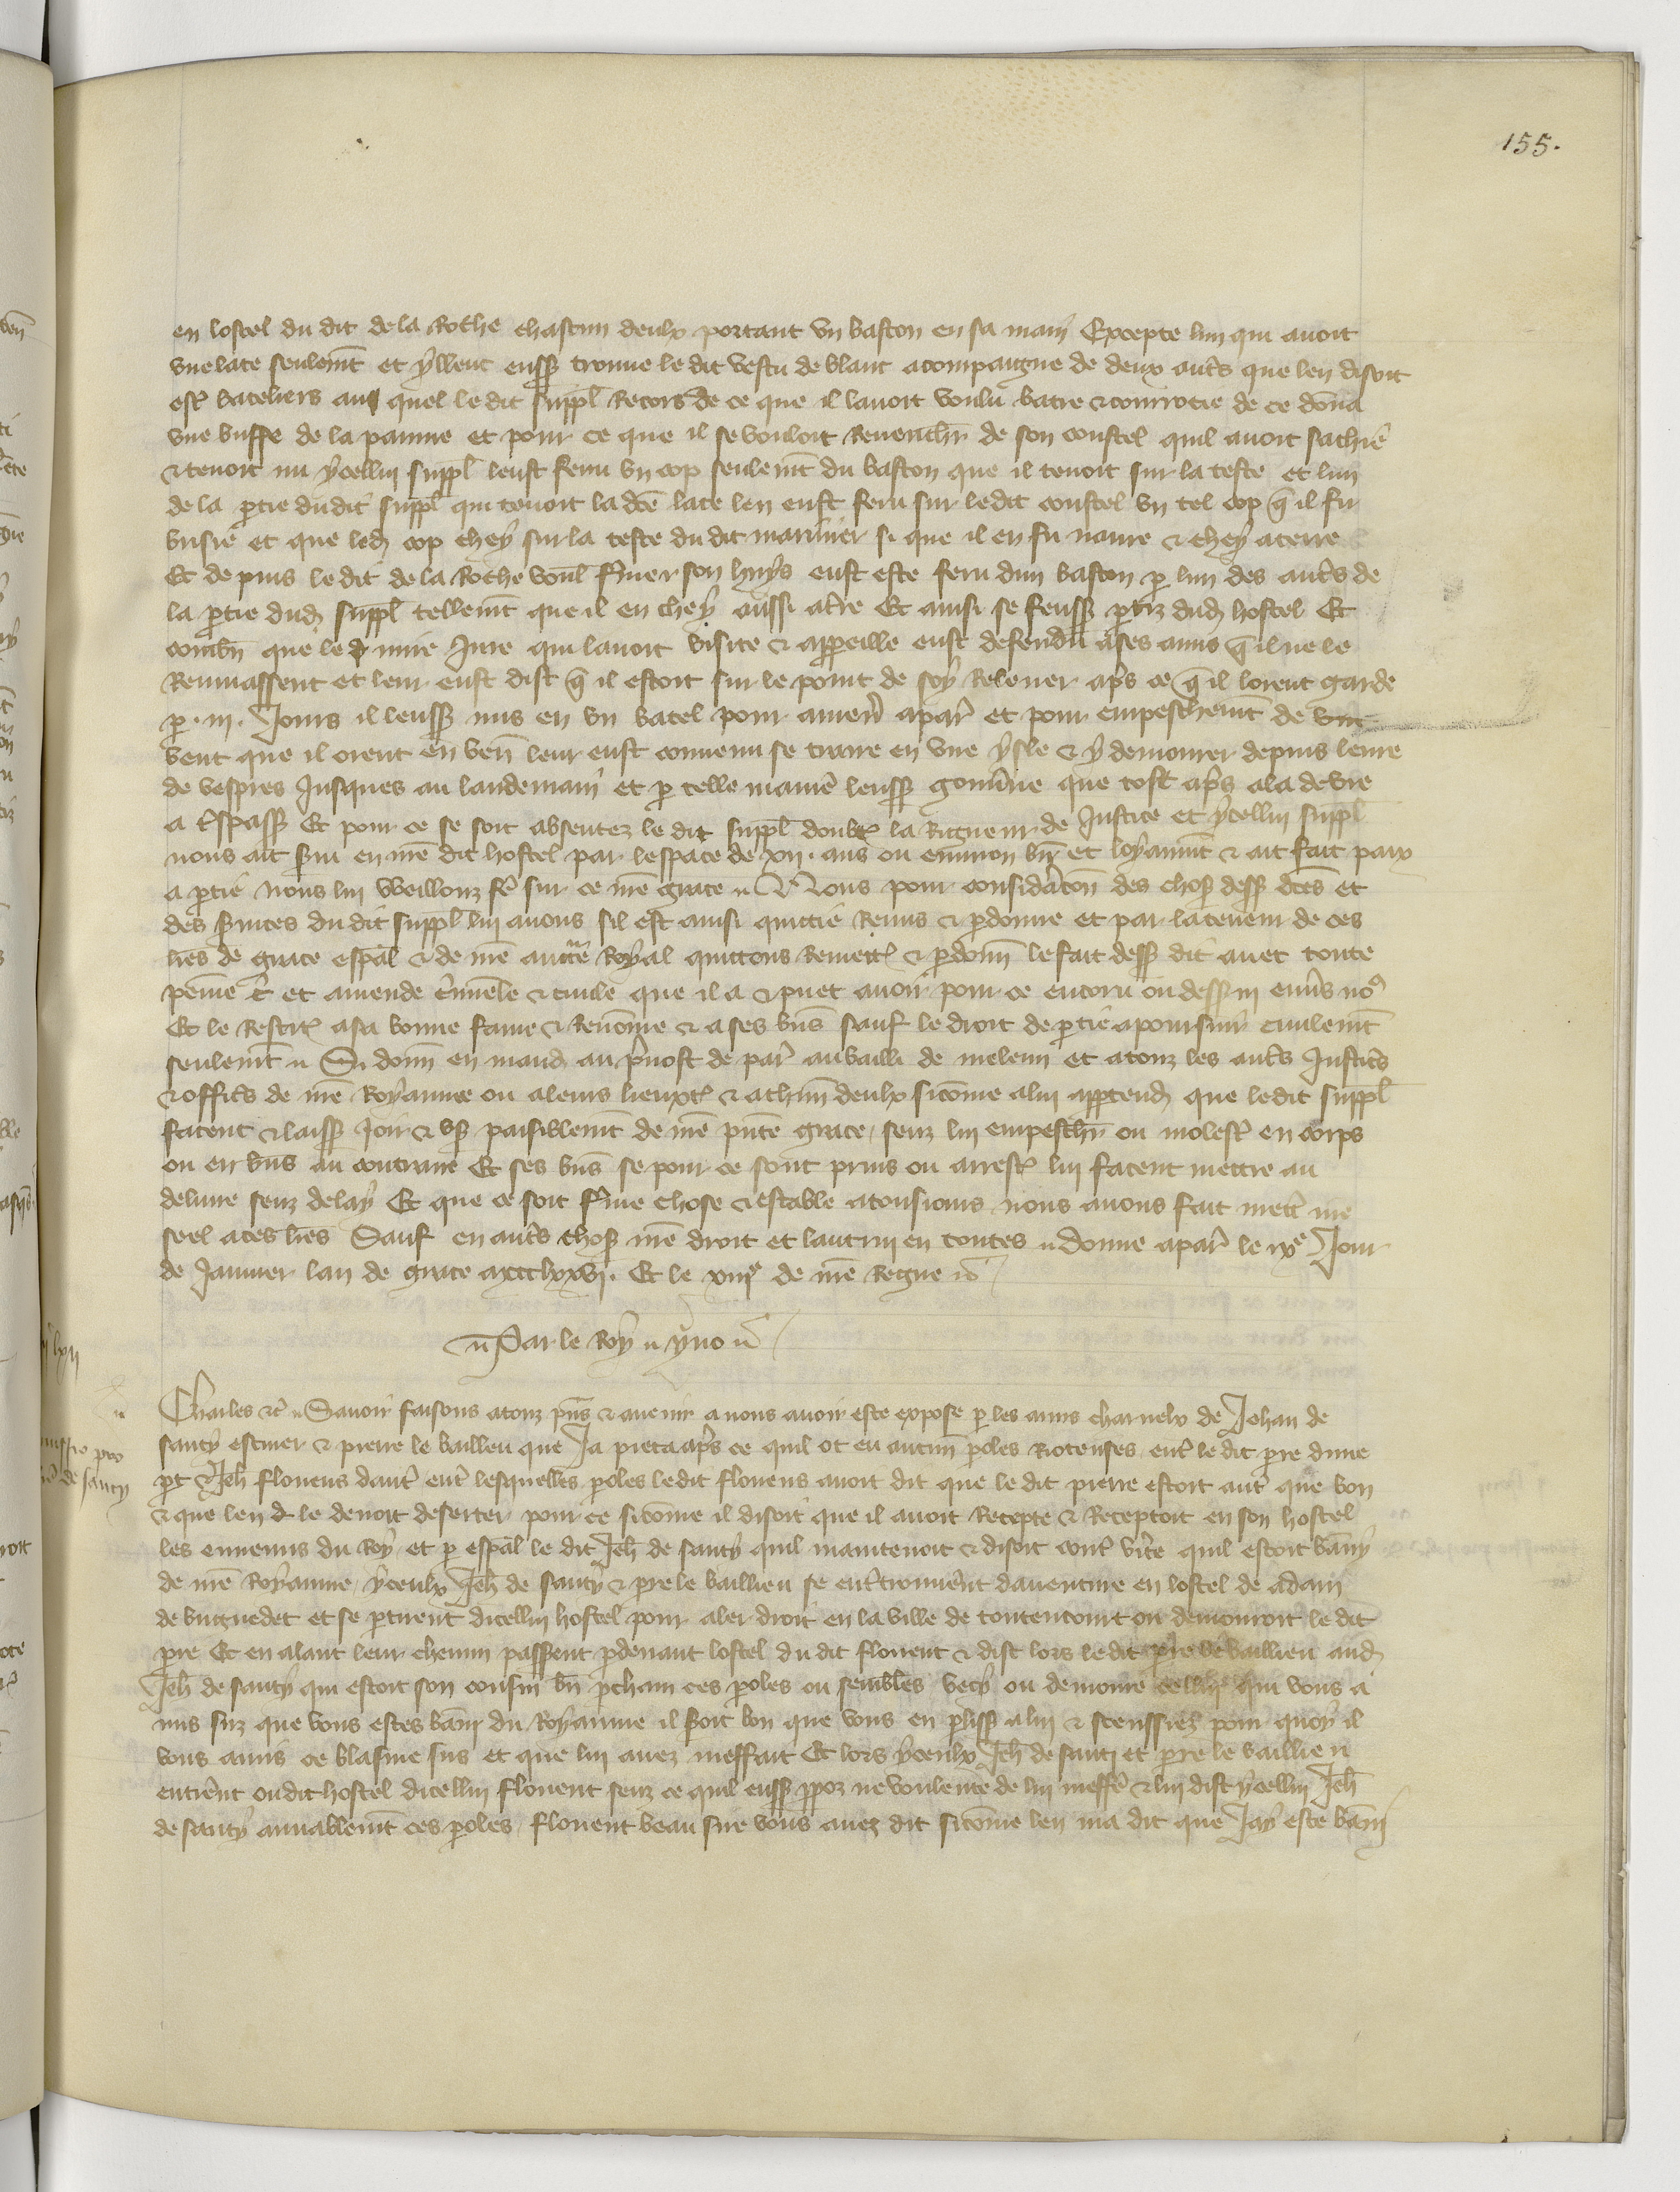 155.
en lostel du dit de la Roche chascun deulx portant vn baston en sa main Excepte lun qui auoit
vne late seulemt et yllent eussẽ trouue le dit vestu de blanc acompaigne de deux autrs que len disoit
estre bateliers au quel le dit suppl Recors de ce que il lauoit voulu batre & courrocie de ce donna
vne buffe de la paume et pour ce que il se vouloit Reuenchr de son coustel quil auoit sachie
& tenoit nu ycellui suppl leust feru vn cop seulemt du baston que il tenoit sur la teste et lun
de la ptie dudit suppl qui tenoit la dce late len eust feru sur ledit coustel vn tel cop q̃ il fu
brisie et que led cop chey sur la teste du dit marinier si que il en fu naure & chey a terre
Et depuis le dit de la Roche voul fmer son huys eust este feru dun baston p lun des autrs de
la ptie dud suppl tellemt que il en chey aussi a tre Et ainsi se feussẽ ptiz dud hostel Et
combn que le mire Jure qui lauoit visite & appeille eust defendu a ses amis q̃ il ne le
Remuassent et leur eust dist q̃ il estoit sur le point de soy Releuer aps ce q̃ il lorent garde
p .iii. Jours il leussẽ mis en vn batel pour amenr a par et pour empeschemt de
vent que il orent en ven leur eust conuenu se traire en vne ysle & y demourer depuis leure
de vespres Jusques au landemain et p telle maniẽ leussẽ gouũne que tost aps ala de vie
a trspassẽ Et pour ce se soit absentez le dit suppl doubt la Rigueur de Justice et ycellui suppl
nous ait sui en nrẽ dit hostel par lespace de xii. ans ou enuiron bn et loyaumt & ait fait paix
a ptie nous lui vueillonz fẽ sur ce nrẽ grace Nous pour consideracõn des chosẽ dessẽ dces et
des suices du dit suppl lui auons sil est ainsi quittie Remis & pdonne et par la teneur de ces
lres de grace espal & de nrẽ auctẽ Royal quittons Remett & pdonn le fait dessẽ dit auec toute
peine et amende crimele & ciuile que il a & puet auoir pour ce encoru ou desserui enũs nos
Et le Restit a sa bonne fame & Renõmee & a ses bns sauf le droit de ptie a poursuir ciuilemt
seulemt Si donn en mand au preuost de par au bailli de meleun et a touz les autrs Justicrs
& officrs de nrẽ Royaume ou a leurs lieuxt & a chun deulx sicõme a lui apptend que ledit suppl
facent & laissẽ Joir & vsẽ paisiblemt de nrẽ pntẽ grace senz lui empeschr ou molest en corps
ou en bns au contraire Et ses bns se pour ce sont prins ou arrest lui facent mettre au
deliure senz delay Et que ce soit fme chose & estable a tousiours nous auons fait mett nrẽ
seel a ces lres Sauf en autrs chosẽ nrẽ droit et lautrui en toutes Donne a par le ixe Jour
de Januier lan de grace mccclxxvi. Et le xiiie de nrẽ Regne
Par le Roy yuo
Charles &c Sauoir faisons a touz pns & auenir a nous auoir este expose p les amis charnelx de Jehan de
santy escuier & pierre le baillieu que Ja pieca aps ce quil ot eu aucun poles Riotenses entr le dit pre dune
pt & Jeh flouens dautr entr lesquelles poles ledit flouens auoit dit que le dit pierre estoit autr que bon
& que len le deuoit deserter pour ce sicõme il disoit que il auoit Recepte & Receptoit en son hostel
les ennemis du Roy et p espal le dit Jeh de santy quil maintenoit & disoit contr vite quil estoit bãny
de nrẽ Royaume yceulx Jeh de santy & pre le baillieu se entrtrouuerent dauenture en lostel de adam
de buiguedet et se ptirent dicellui hostel pour aler droit en la ville de toutencourt ou demouroit le dit
pre Et en alant leur chemin passerent p deuant lostel du dit flouent & dist lors le dit pre le baillieu aud
Jeh de santy qui estoit son cousin bn pchain ces poles ou sembles vecy ou demoure cellui qui vous a
mis suz que vous estes bãni du Royaume il seroit bon que vous en plissẽ a lui & sceussiez pour quoy il
vous a mis ce blasme sus et que lui auez meffait Et lors yceulx Jeh de santi et pre le baillieu
entrerent oudit hostel dicellui flouent senz ce quil eussẽ ppoz ne voulente de lui meffẽ & lui dist ycellui Jeh
de santy amiablemt ces poles flouent beau sire vous auez dit sicõme len ma dit que Jay este bãni